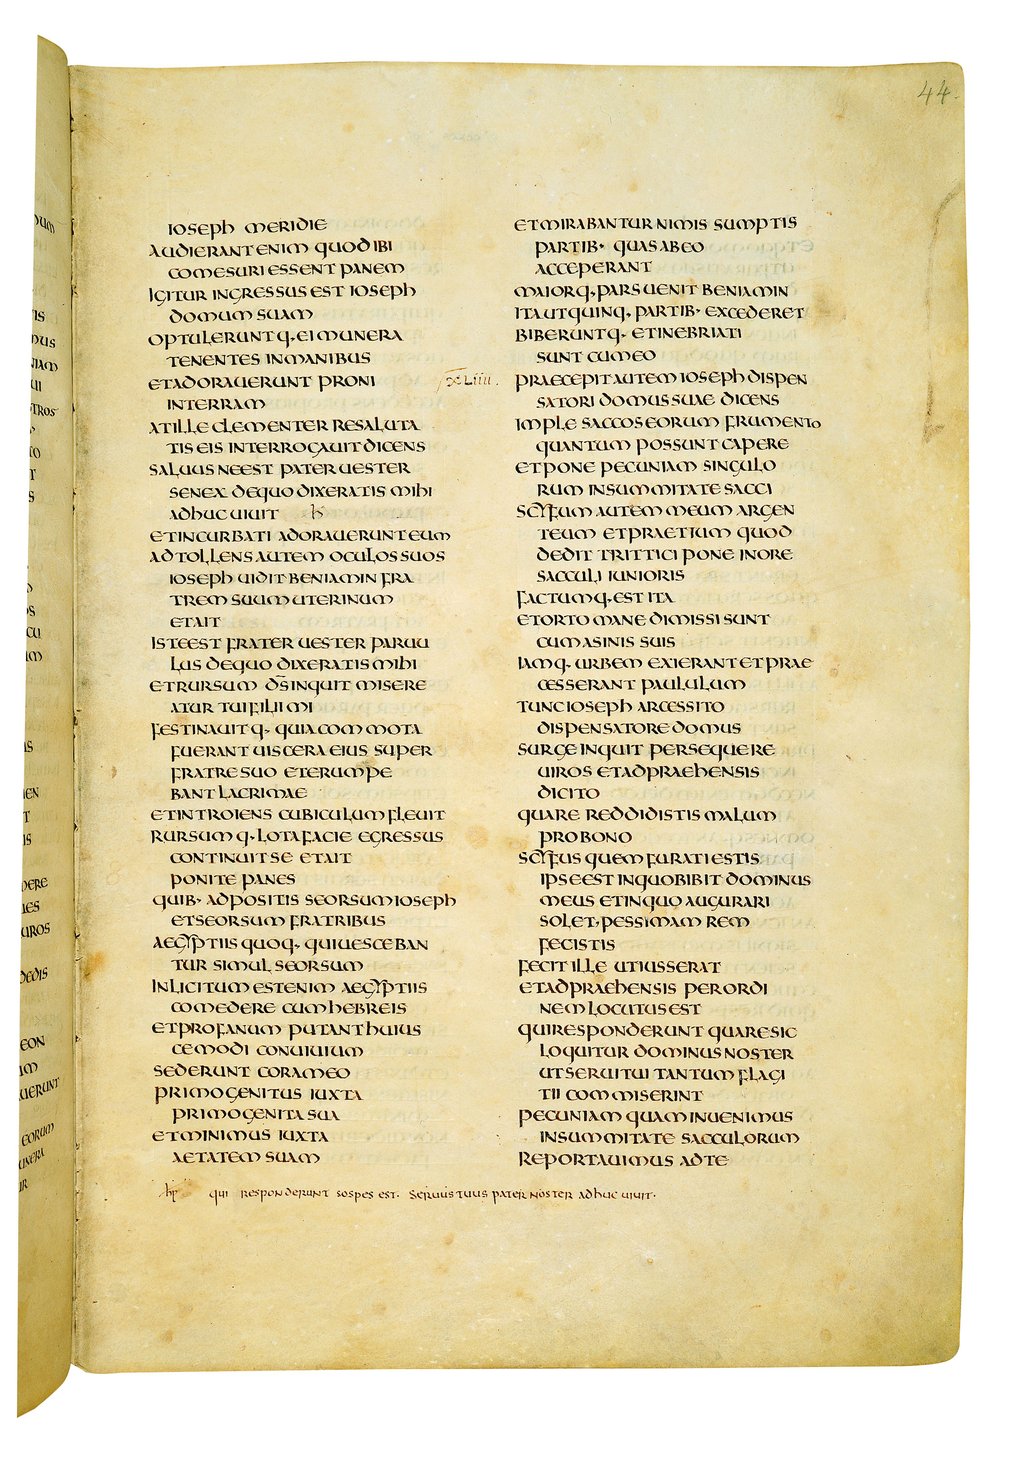 44
IOSEPH MERIDIE
AUDIERANT ENIM QUOD IBI
COMESURI ESSENT PANEM
IGITUR INGRESSUS EST IOSEPH
DOMUM SUAM
OPTULERUNT Q· EI MUNERA
TENENTES IN MANIBUS
ET ADORAUERUNT PRONI
IN TERRAM
AT ILLE CLEMENTER RESALUTA
TIS EIS INTERROGAUIT DICENS
SALUUS NE EST PATER UESTER
SENEX DE QUO DIXERATIS MIHI
ADHUC UIUIT
ET INCURBATI ADORAUERUNT EUM
ADTOLLENS AUTEM OCULOS SUOS
IOSEPH UIDIT BENIAMIN FRA
TREM SUUM UTERINUM
ET AIT
ISTE EST FRATER UESTER PARUU
LUS DE QUO DIXERATIS MIHI
ET RURSUM D̅S̅ INQUIT MISERE
ATUR TUI FILI MI
FESTINAUIT Q· QUIA COMMOTA
FUERANT UISCERA EIUS SUPER
FRATRE SUO ET ERUMPE
BANT LACRIMAE
ET INTROIENS CUBICULUM FLEUIT
RURSUM Q· LOTA FACIE EGRESSUS
CONTINUIT SE ET AIT
PONITE PANES
QUIB· ADPOSITIS SEORSUM IOSEPH
ET SEORSUM FRATRIBUS
AEGYPTIIS QUOQ· QUI UESCEBAN
TUR SIMUL SEORSUM
INLICITUM EST ENIM AEGYPTIIS
COMEDERE CUM HEBREIS
ET PROFANUM PUTANT HUIUS
CEMODI CONUIUIUM
SEDERUNT CORAM EO
PRIMOGENITUS IUXTA
PRIMOGENITA SUA
ET MINIMUS IUXTA
AETATEM SUAM
ET MIRABANTUR NIMIS SUMPTIS
PARTIB· QUAS AB EO
ACCEPERANT
MAIORQ· PARS UENIT BENIAMIN
ITA UT QUINQ· PARTIB· EXCEDERET
BIBERUNT Q· ET INEBRIATI
SUNT CUM EO
XLIIII. PRAECEPIT AUTEM IOSEPH DISPEN
SATORI DOMUS SUAE DICENS
IMPLE SACCOS EORUM FRUMENTO
QUANTUM POSSUNT CAPERE
ET PONE PECUNIAM SINGULO
RUM IN SUMMITATE SACCI
SCYFUM AUTEM MEUM ARGEN
TEUM ET PRAETIUM QUOD
DEDIT TRITTICI PONE IN ORE
SACCULI IUNIORIS
FACTUM Q· EST ITA
ET ORTO MANE DIMISSI SUNT
CUM ASINIS SUIS
IAMQ· URBEM EXIERANT ET PRAE
CESSERANT PAULULUM
TUNC IOSEPH ARCESSITO
DISPENSATORE DOMUS
SURGE INQUIT PERSEQUERE
UIROS ET ADPRAEHENSIS
DICITO
QUARE REDDIDISTIS MALUM
PRO BONO
SCYFUS QUEM FURATI ESTIS
IPSE EST IN QUO BIBIT DOMINUS
MEUS ET IN QUO AUGURARI
SOLET· PESSIMAM REM
FECISTIS
FECIT ILLE UT IUSSERAT
ET ADPRAEHENSIS PER ORDI
NEM LOCUTUS EST
QUI RESPONDERUNT QUARE SIC
LOQUITUR DOMINUS NOSTER
UT SERUI TUI TANTUM FLAGI
TII COMMISERINT
PECUNIAM QUAM INUENIMUS
IN SUMMITATE SACCULORUM
REPORTAUIMUS AD TE
hp QUI RESPONDERUNT SOSPES EST. SERUUS TUUS PATER NOSTER ADHUC UIUIT·